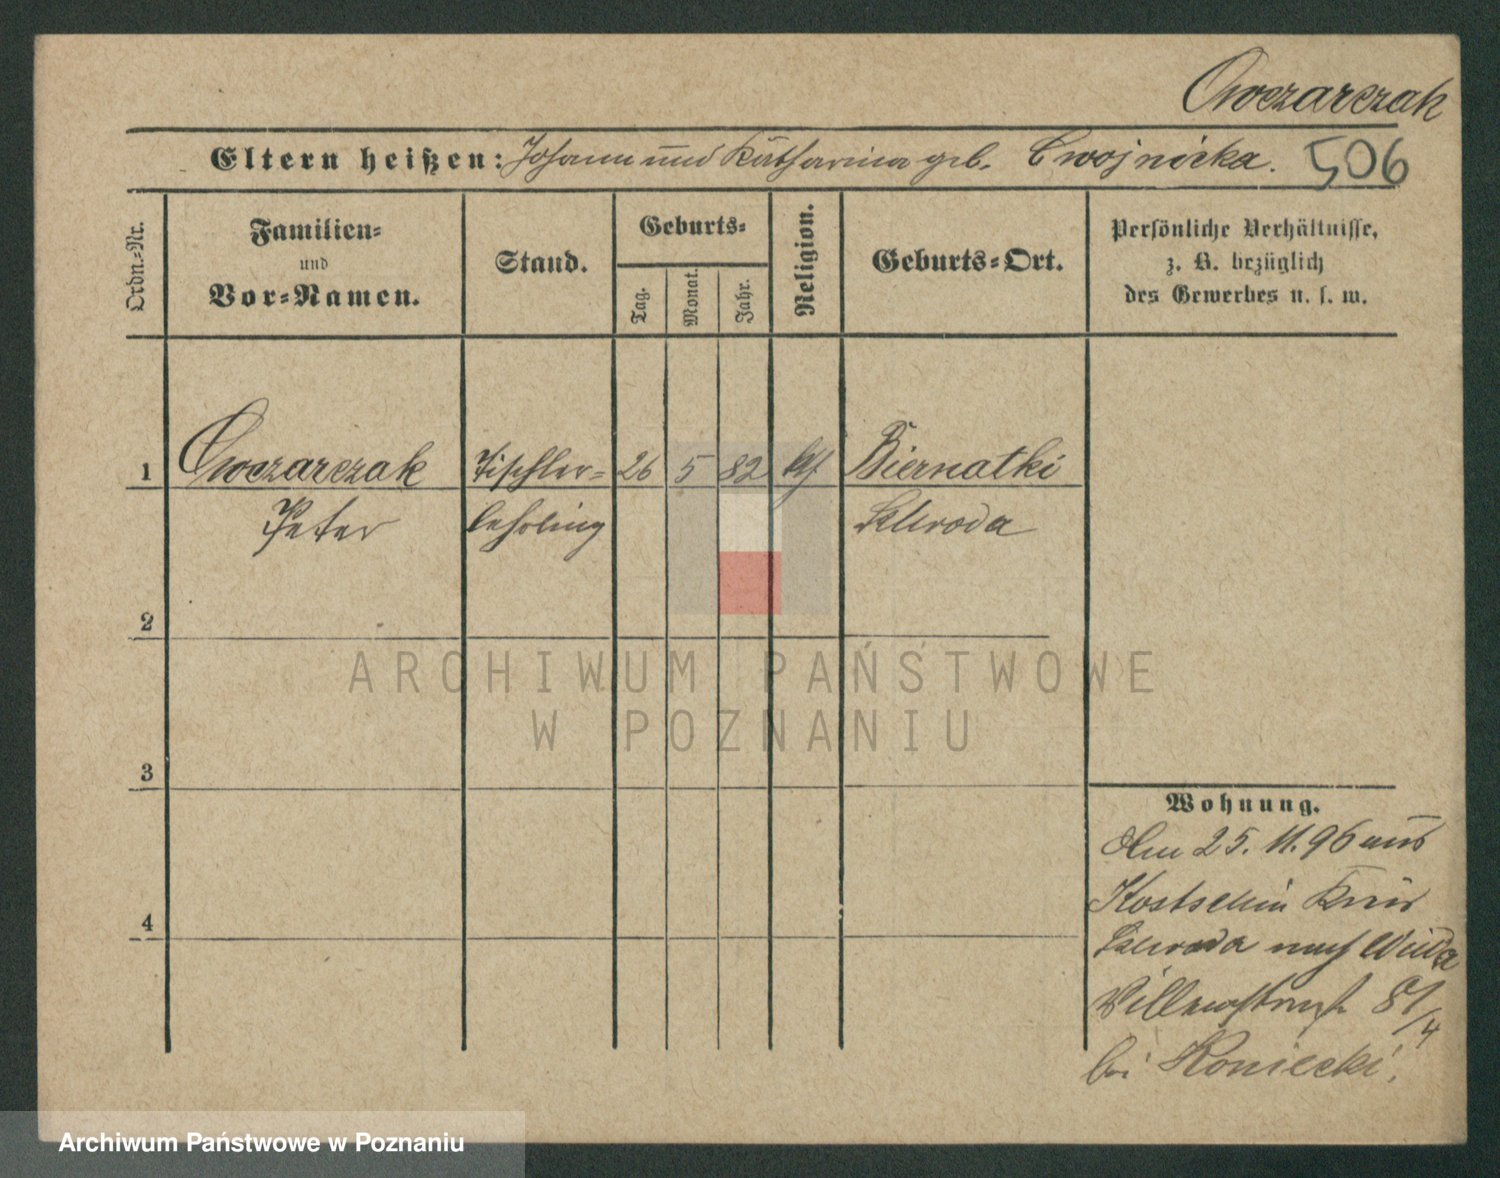 Owczarczak
Eltern heißen: Johann und Katharina geb. Cwojnicka. 506
Ordn.-Nr.
Familien-
und
Vor-Namen.
Stand.
Geburts-
Tag.
Monat.
Jahr.
Religion.
Geburts-Ort.
Persönliche Verhältnisse,
z. B. bezüglich
des Gewerbes u. s. w.
1 Owczarczak Tischler- 26 5 82 kth Biernatki
Peter lehrling Schroda
2
3
4
Wohnung.
Am 25. 11. 96 aus
Kostschin Kreis
Schroda nach Wilda
Villenstraße 81/4
bei Koniecki.
ARCHIWUM PAŃSTWOWE
W POZNANIU
Archiwum Państwowe w Poznaniu